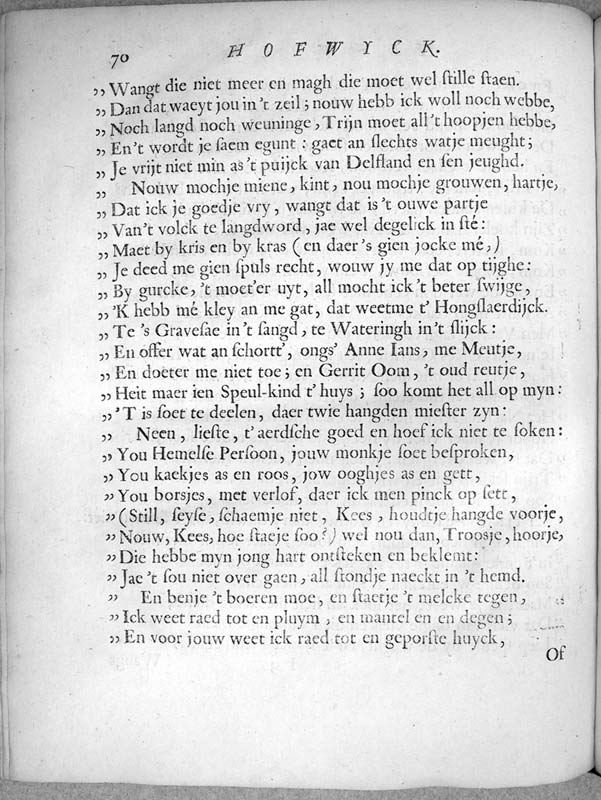 70 HOFWYCK.
„ Wangt die niet meer en magh die moet wel ſtille ſtaen.
„ Dan dat waeyt jou in 't zeil; nouw hebb ick woll noch webbe,
„ Noch langd noch weuninge, Trijn moet all 't hoopjen hebbe,
„ En 't wordt je ſaem egunt: gaet an ſlechts watje meught;
„ Je vrijt niet min as 't puijck van Delfland en ſen jeughd.
„ Nouw mochje miene, kint, nou mochje grouwen, hartje,
„ Dat ick je goedje vry, wangt dat is 't ouwe partje
„ Van 't volck te langdword, jae wel degelick in ſté:
„ Maet by kris en by kras (en daer's gien jocke mé,)
„ Je deed me gien ſpuls recht, wouw jy me dat op tijghe:
„ By gurcke, 't moet'er uyt, all mocht ick 't beter ſwijge,
„ 'K hebb mé kley an me gat, dat weetme t' Hongſlaerdijck.
„ Te 's Graveſae in 't ſangd, te Wateringh in 't ſlijck:
„ En offer wat an ſchortt', ongs' Anne Ians, me Meutje,
„ En doeter me niet toe; en Gerrit Oom, 't oud reutje,
„ Heit maer ien Speul-kind t' huys; ſoo komt het all op myn:
„ 'T is ſoet te deelen, daer twie hangden mieſter zyn:
„ Neen, lieſte, t' aerdſche goed en hoef ick niet te ſoken:
„ You Hemelſe Perſoon, jouw monkje ſoet beſproken,
„ You kaekjes as en roos, jow ooghjes as en gett,
„ You borsjes, met verlof, daer ick men pinck op ſett,
„ (Still, ſeyſe, ſchaemje niet, Kees, houdtje hangde voorje,
„ Nouw, Kees, hoe ſtaeje ſoo?) wel nou dan, Troosje, hoorje,
„ Die hebbe myn jong hart ontſteken en beklemt:
„ Jae 't ſou niet over gaen, all ſtondje naeckt in 't hemd.
„ En benje 't boeren moe, en ſtaetje 't melcke tegen,
„ Ick weet raed tot en pluym, en mantel en en degen;
„ En voor jouw weet ick raed tot en geporſte huyck,
Of